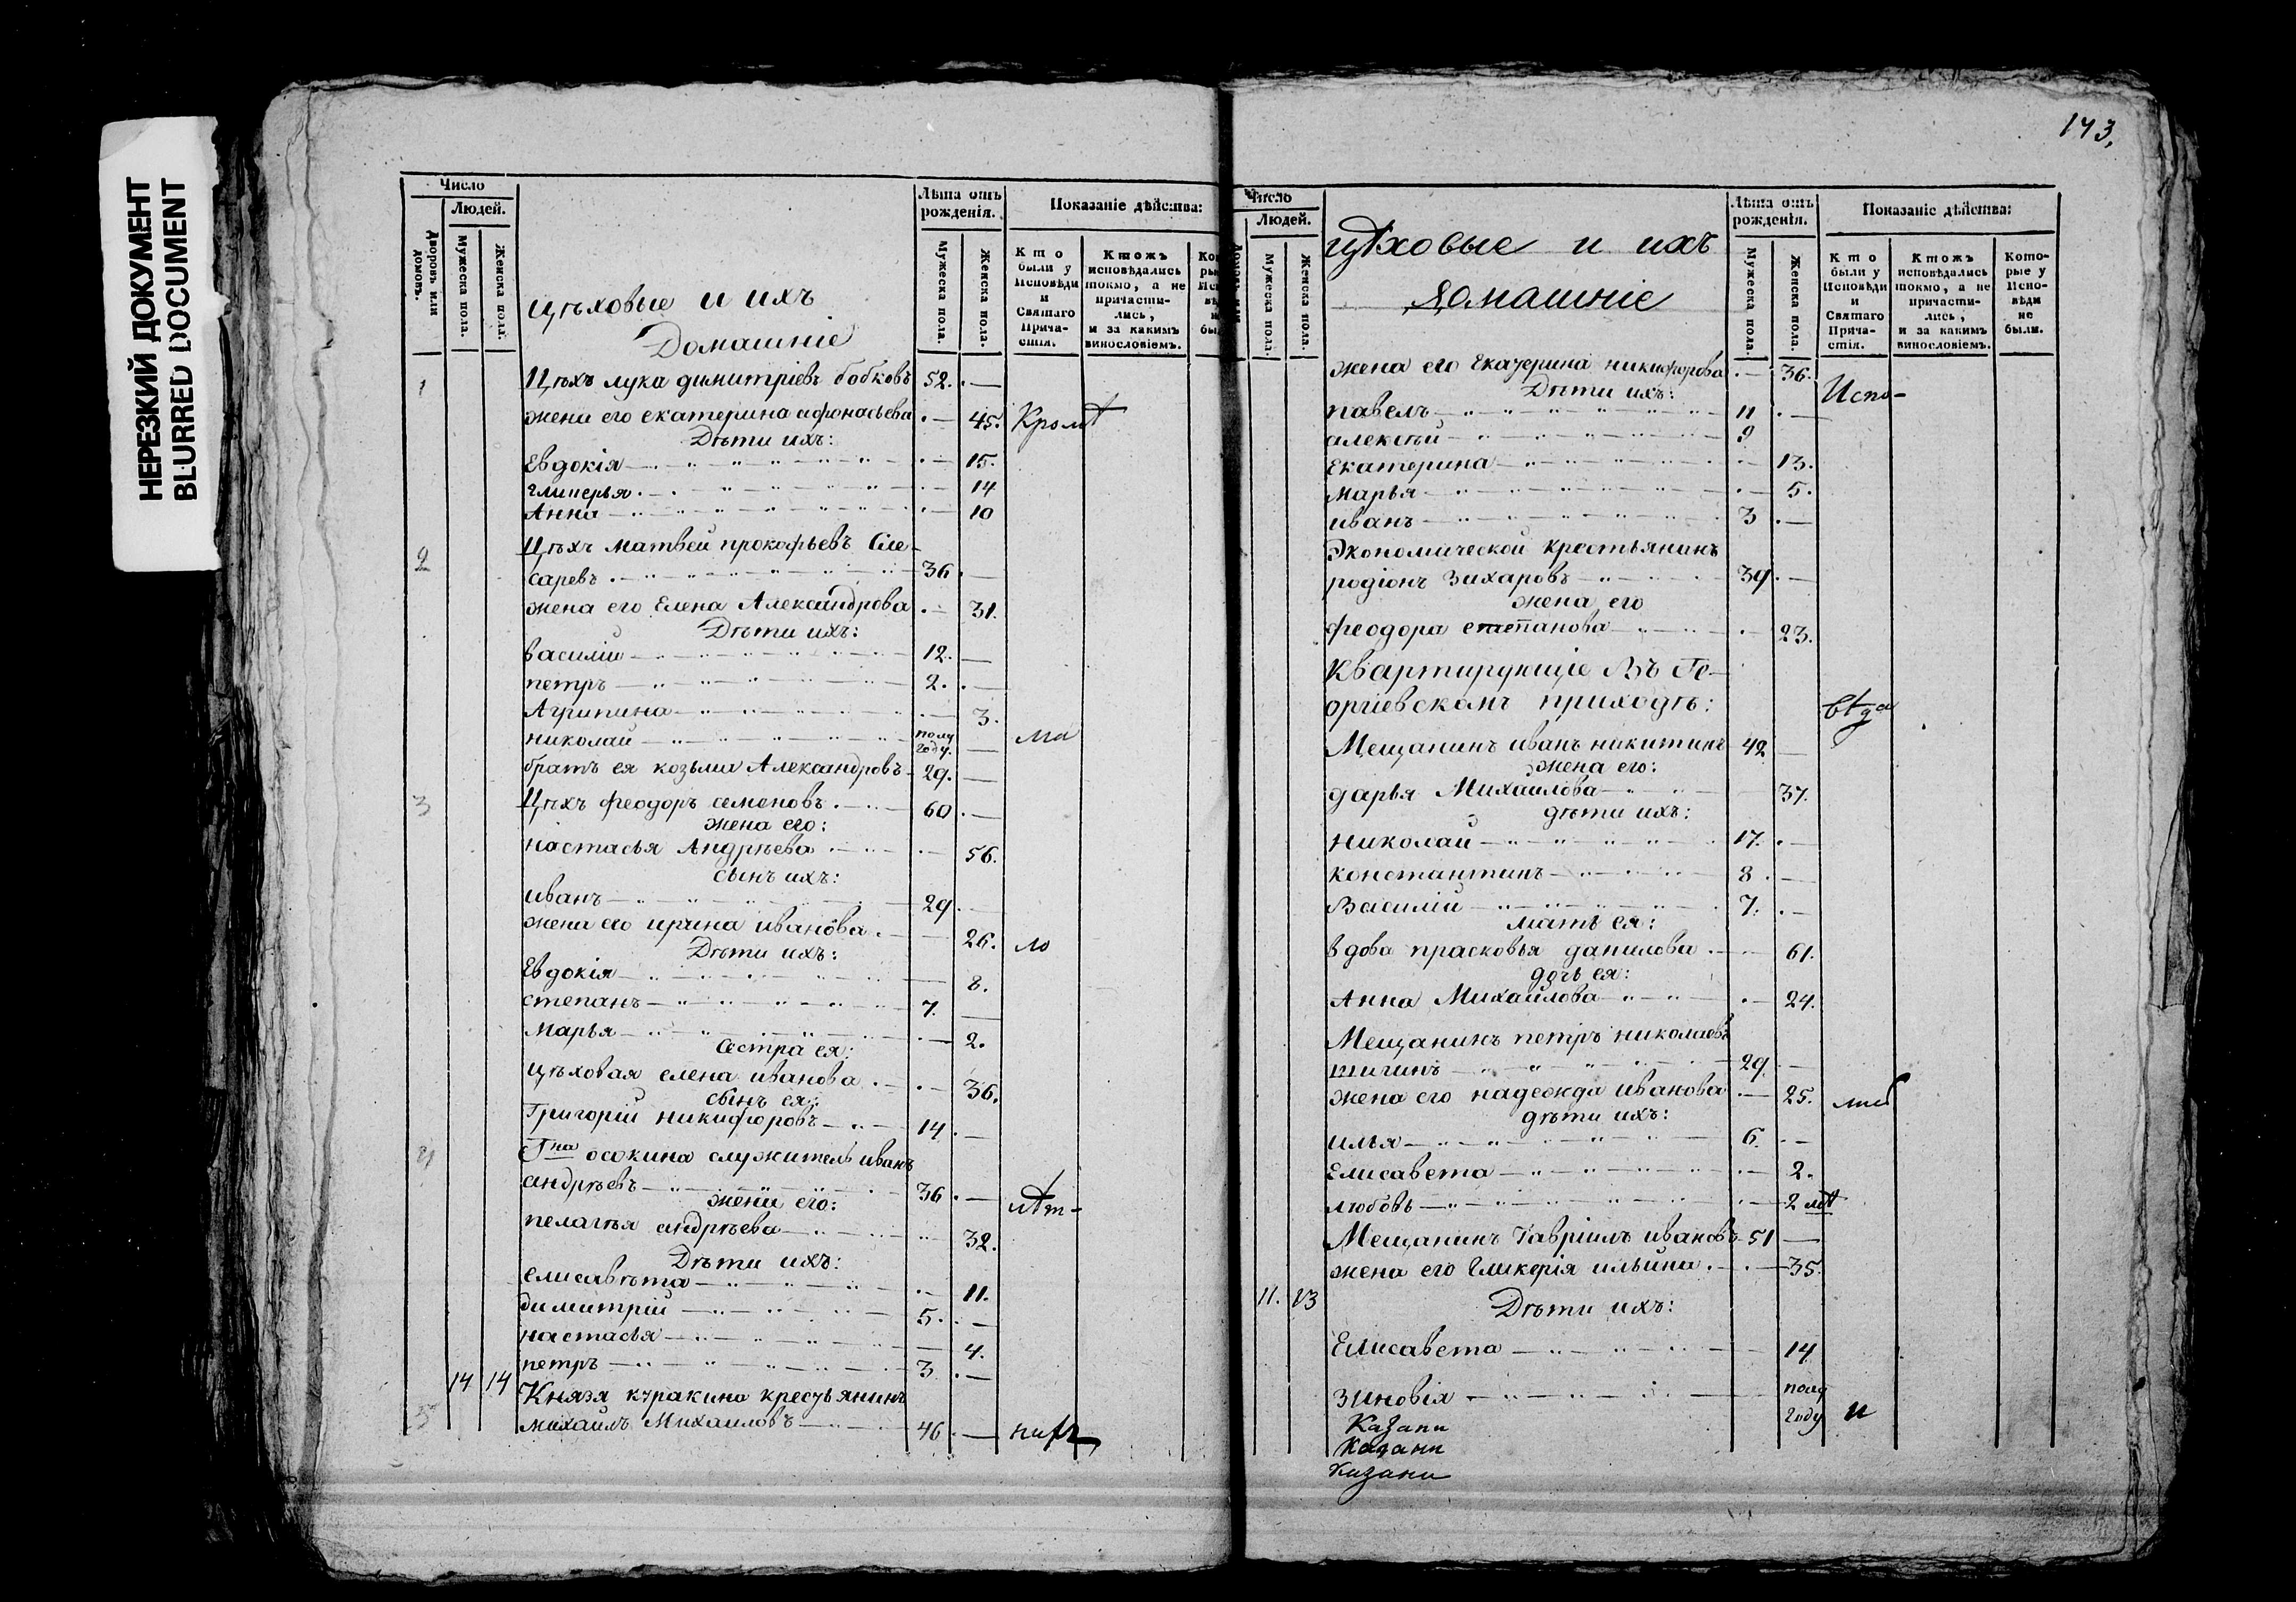 НЕРЕЗКИЙ ДОКУМЕНТ
BLURRED DOCUMENT
Число
Людей.
Дворовъ или домовъ.
Мужеска пола.
Женска пола.
Лѣта отъ рожденія.
Мужеска пола.
Женска пола.
Показаніе дѣйства:
Кто были у Исповѣди и Святаго Причастія.
Ктожъ исповѣдались токмо, а не причастились, и за какимъ винословіемъ.
цѣховые и ихъ
Домашніе
1 Цѣхъ лука димитріевъ бобковъ 52.
жена его екатерина афонасьева 45. Кромѣ
Дѣти ихъ:
Евдокія 15.
гликерья 14
Анна 10
2 Цѣхъ Матвей прокофьевъ Сле-
саревъ 36
жена его Елена Александрова 31.
Дѣти ихъ:
василій 12.
петръ 2.
Агрипина 3.
николай полу году. ма
братъ ея козьма Александровъ 29.
3 Цѣхъ феодоръ семеновъ 60
жена его:
настасья Андрѣева 56.
сынъ ихъ:
иванъ 29
жена его ирина иванова 26. ло
Дѣти ихъ:
Евдокія 8.
степанъ 7.
Марья 2.
Сестра ея:
цѣховая елена иванова 36.
сынъ ея:
Григорій никифоровъ 14
4 Гна осокина служитель иванъ
андрѣевъ 36 лѣт-
жена его:
пелагѣя андрѣева 32.
Дѣти ихъ:
елисавѣта 11.
димитрій 5.
настасья 4.
петръ 3
14 14
Князя куракина крестьянинъ
5 михаилъ Михаиловъ 46 нихъ
173.
Число
Людей.
Мужеска пола.
Женска пола.
Лѣта отъ рожденія.
Мужеска пола.
Женска пола.
Показаніе дѣйства:
Кто были у Исповѣди и Святаго Причастія.
Ктожъ исповѣдались токмо, а не причастились, и за какимъ винословіемъ.
Которые у Исповѣди не были.
цѣховые и ихъ
Домашніе
жена его Екатерина никифорова 36. Испо-
Дѣти ихъ:
павелъ 11
алексѣй 9
Екатерина 13.
марья 5.
иванъ 3
Экономической крестьянинъ
родіонъ Захаровъ 39
жена его
феодора степанова 23.
Квартирующіе Въ Ге-
оргіевскомъ приходѣ: вѣда
Мещанинъ иванъ никитинъ 42
жена его:
дарья Михаилова 37.
дѣти ихъ:
николай 17.
константинъ 8
Василій 7.
мать ея:
вдова прасковья данилова 61.
дочь ея:
Анна Михайлова 24.
Мещанинъ петръ николаевъ
29
жена его надежда иванова 25.
дѣти ихъ:
илья 6.
Елисавета 2.
любовь 2 лѣт
Мещанинъ Гавріилъ ивановъ 51
жена его Гликерія ильина 35.
11. 13
Дѣти ихъ:
Елисавета 14
зиновія полу году и
Казани
Казани
Казани